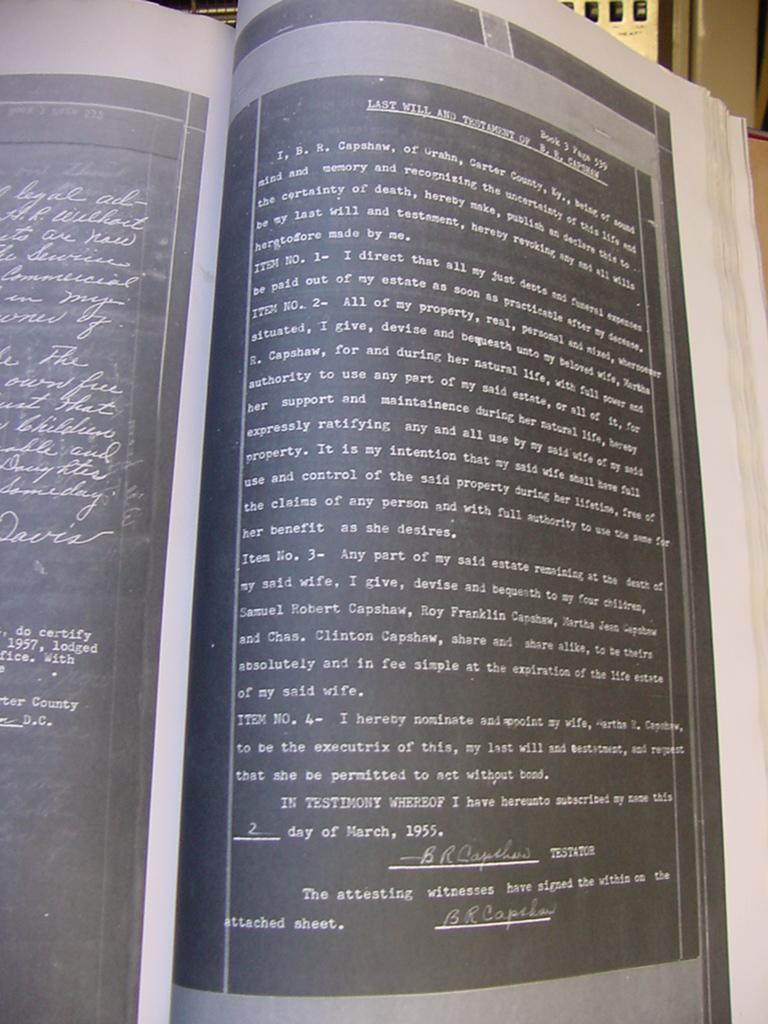 l legal ad-
H.R. Wilhoit
its are now
he Services
Commercial
in my
owner of
le The
own free
ust that
y Children
able and
Daughter
Someday
Davis
, do certify
1957, lodged
fice. With
e
rter County
D.C.
Book 3 Page 539
LAST WILL AND TESTAMENT OF B. R. CAPSHAW
I, B. R. Capshaw, of Grahn, Carter County, Ky., being of sound
mind and memory and recognizing the uncertainty of this life and
the certainty of death, hereby make, publish an declare this to
be my last will and testament, hereby revoking any and all wills
heretofore made by me.
ITEM NO. 1- I direct that all my just debts and funeral expenses
be paid out of my estate as soon as practicable after my decease.
ITEM NO. 2- All of my property, real, personal and mixed, whersoever
situated, I give, devise and bequeath unto my beloved wife, Martha
R. Capshaw, for and during her natural life, with full power and
authority to use any part of my said estate, or all of it, for
her support and maintainence during her natural life, hereby
expressly ratifying any and all use by my said wife of my said
property. It is my intention that my said wife shall have full
use and control of the said property during her lifetime, free of
the claims of any person and with full authority to use the same for
her benefit as she desires.
Item No. 3- Any part of my said estate remaining at the death of
my said wife, I give, devise and bequeath to my four children,
Samuel Robert Capshaw, Roy Franklin Capshaw, Martha Jean Capshaw
and Chas. Clinton Capshaw, share and share alike, to be theirs
absolutely and in fee simple at the expiration of the life estate
of my said wife.
ITEM NO. 4- I hereby nominate and appoint my wife, Martha R. Capshaw,
to be the executrix of this, my last will and testatment, and request
that she be permitted to act without bond.
IN TESTIMONY WHEREOF I have hereunto subscribed my name this
2 day of March, 1955.
B R Capshaw TESTATOR
The attesting witnesses have signed the within on the
attached sheet. B R Capshaw